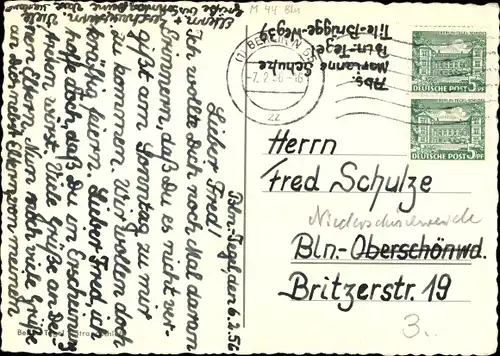 Bln.-Tegel, den 6.2.56
Lieber Fred!
Ich wollte Dich noch mal daran
erinnern, daß Du es nicht ver-
gißt am Sonntag zu mir
zu kommen. Wir wollen doch
kräftig feiern. Lieber Fred, ich
hoffe doch, daß Du in Erscheinung
treten wirst. Viele Grüße an Dei-
nen Eltern. Nun noch viele Grüße
an Dich und Eltern von meinen
Eltern +
M 44 Bln
Abs.
Marianne
Schulze
Bln.-Tegel
Tile-Brügge-Weg 39
(1) BERLIN
-7.2.56-16
22
DEUTSCHE POST 5PF
DEUTSCHE POST 5PF
Herrn
Fred Schulze
Niederschöneweide
Bln.-Oberschönwd.
Britzerstr. 19
3.